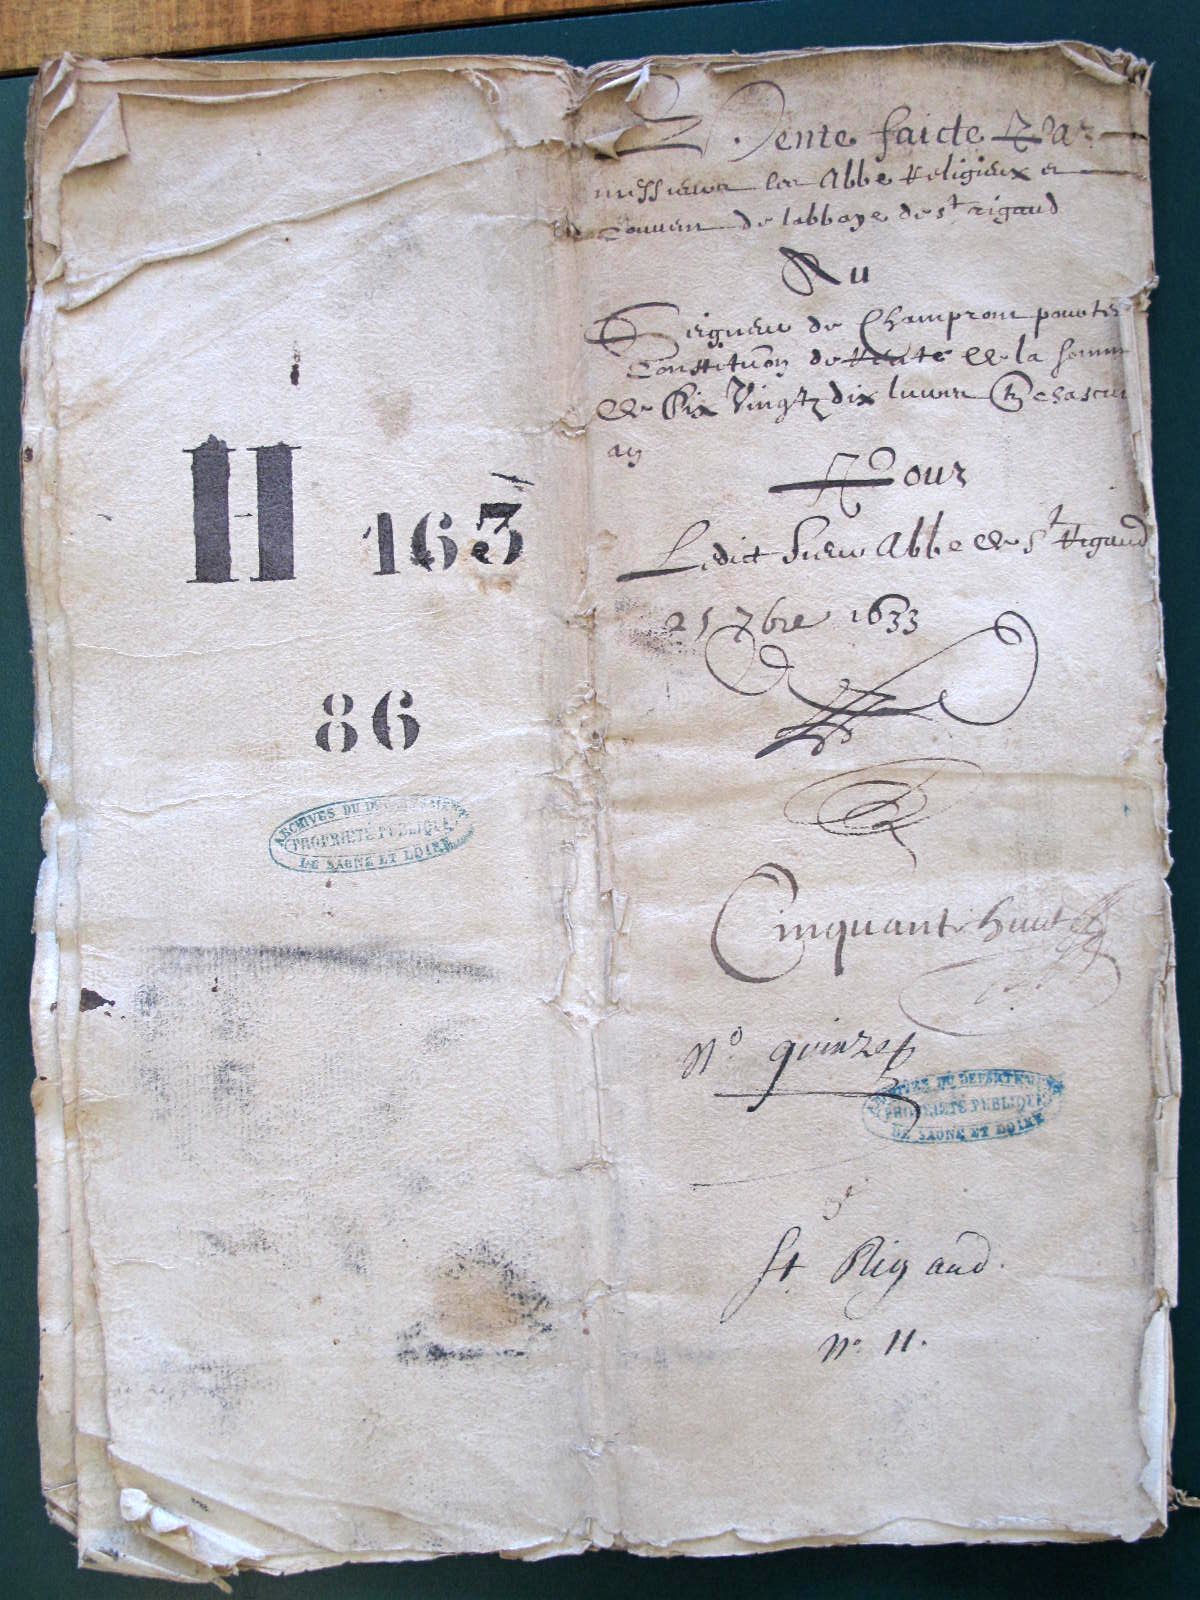 H 163
86
ARCHIVES DU DEPARTEMENT
PROPRIETE PUBLIQUE
DE SAONE ET LOIRE
Vente faicte Par
messieurs les Abbe Religieux et
Couvent de labbaye de st rigaud
Au
Seigneur de Champron pour
Constitution de de la somme
de Six Vingtz dix livres chascun
an
Pour
Ledict sieur Abbe de st Rigaud
25 7bre 1633
Cinquante huit
No quinze
ARCHIVES DU DEPARTEMENT
PROPRIETE PUBLIQUE
DE SAONE ET LOIRE
3e
St Rigaud.
No 11.